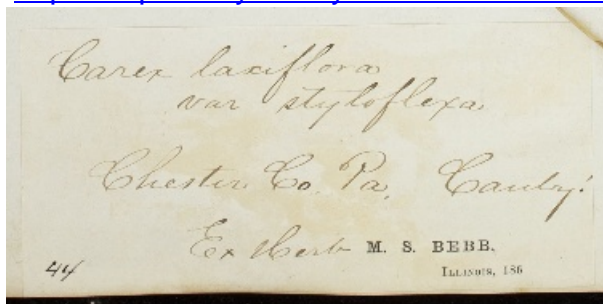 Carex laxiflora
var styloflexa
Chester Co. Pa, Canby!
Ex Herb M. S. BEBB.
44
ILLINOIS, 186